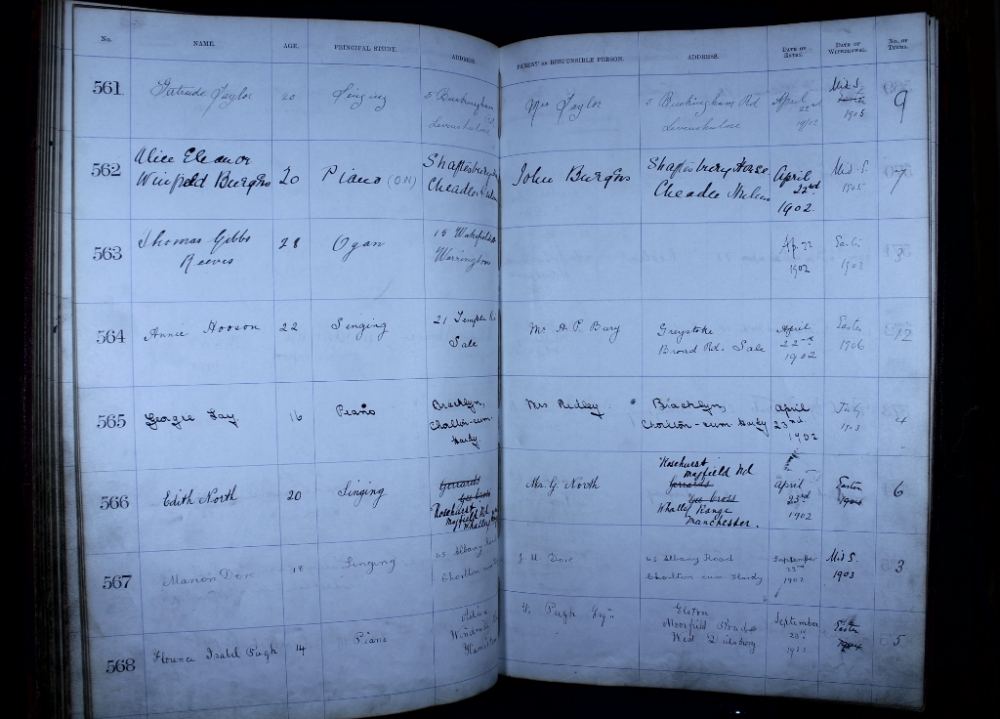 No. NAME. AGE. PRINCIPAL STUDY. ADDRESS. PARENT OR RESPONSIBLE PERSON. ADDRESS. DATE OF ENTRY. DATE OF WITHDRAWAL. No. OF TERMS.
561 Gertrude Taylor 20 Singing 5 Buckingham Rd Levenshulme Mrs Taylor 5 Buckingham Rd Levenshulme April 22nd 1902 Mids. 1905 9
562 Alice Eleanor
Winifred Burghs 20 Piano Shaftesbury Cheadle John Burghs Shaftesbury House Cheadle Hulme April 22nd 1902 Mid S. 1905 7
563 Thomas Gibbs
Reeves 28 Ogan 18 Wakefield Warrington Ap. 22 1902 3
564 Annie Hooson 22 Singing 21 Temple Rd Sale Mr A. P. Bury Greystoke Broad Rd. Sale April 22nd 1902 Easter 1906 12
565 Georgie Fay 16 Piano Bracklyn, Chorlton-cum-Hardy. Mrs Ridley Bracklyn, Chorlton-cum-Hardy April 23rd 1902 July 1903 4
566 Edith North 20 Singing Gerrards Gee Cross Rosehurst Mayfield Rd Whalley Mr G North Rosehurst Mayfield Rd Gerrards Gee Cross Whally Range Manchester. April 23rd 1902 Easter 1904 6
567 Marion Dore 18 Singing Albany Road Chorlton Dore Albany Road Chorlton cum Hardy September 1902 Mid S. 1903 3
568 Florence Isabel Pugh 14 Piano Pugh Esq. Elston Moorfield West Didsbury September Easter 1904 5